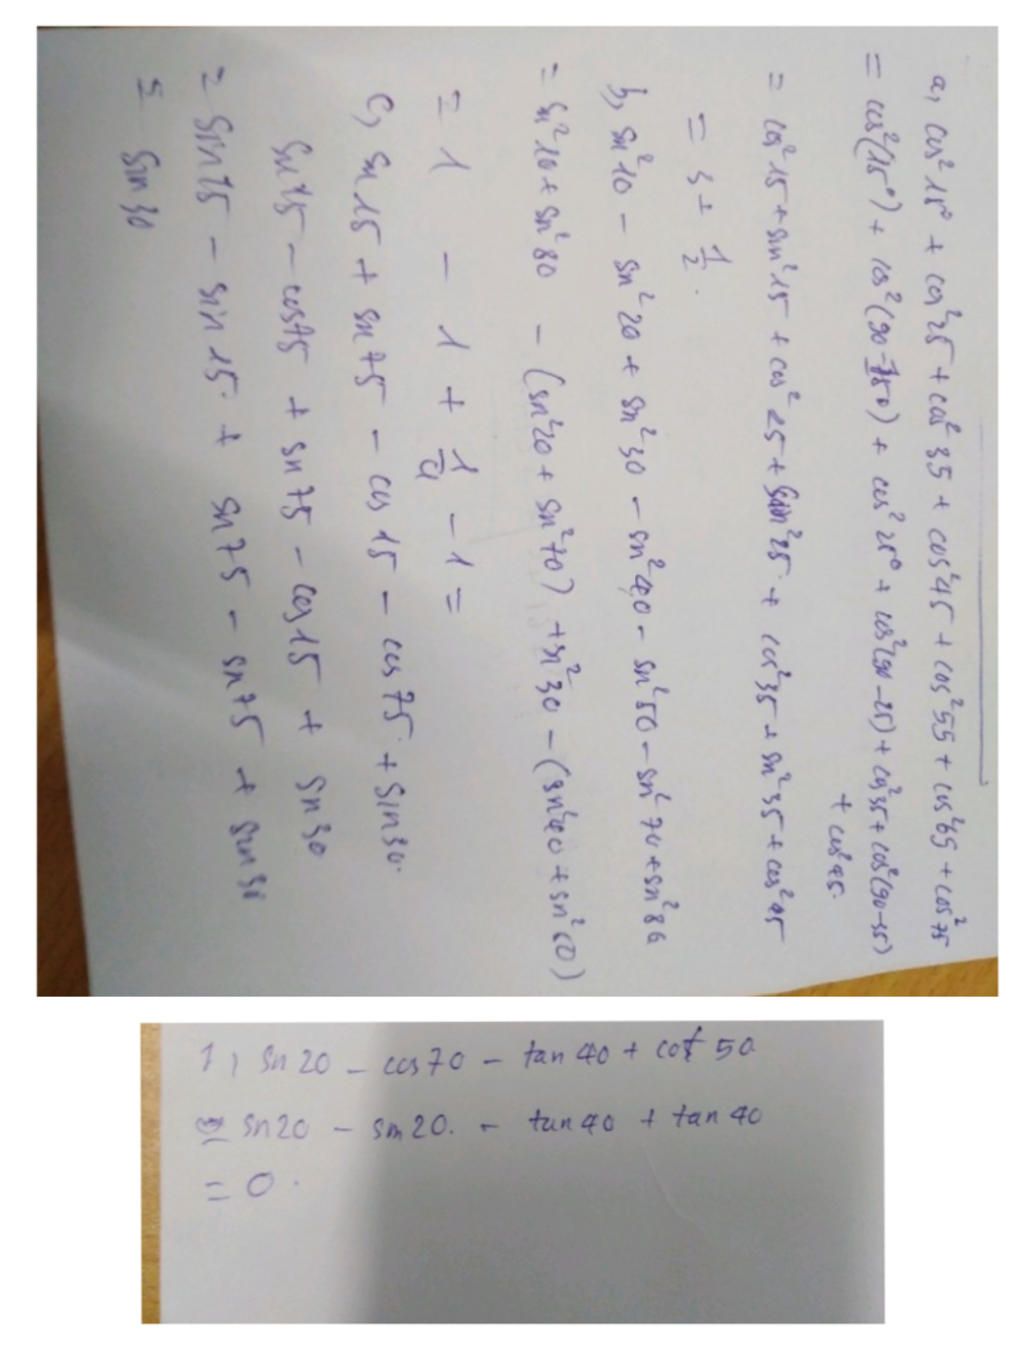 a, cos²15° + cos²25 + cos²35 + cos²45 + cos²55 + cos²65 + cos²75
= cos²(15°) + cos²(90-150) + cos²25° + cos²(90-25) + cos²35 + cos²(90-35)
+ cos²45.
= cos²15 + sin²15 + cos²25 + sin²25 + cos²35 + sn²35 + cos²45
= 3 + 1/2.
b, sn²10 - sn²20 + sn²30 - sn²40 - sn²50 - sn²70 + sn²80
= sn²10 + sn²80 - (sn²20 + sn²70) + sn²30 - (sn²40 + sn²50)
= 1 - 1 + 1/4 - 1 =
c, sn15 + sn75 - cos15 - cos75 + sin30.
sn75 - cos75 + sn75 - cos15 + sn30
= sin75 - sin15 + sn75 - sn75 + sin30
= sin30
1, sn20 - cos70 - tan40 + cot50
= sn20 - sm20. - tan40 + tan40
= 0.